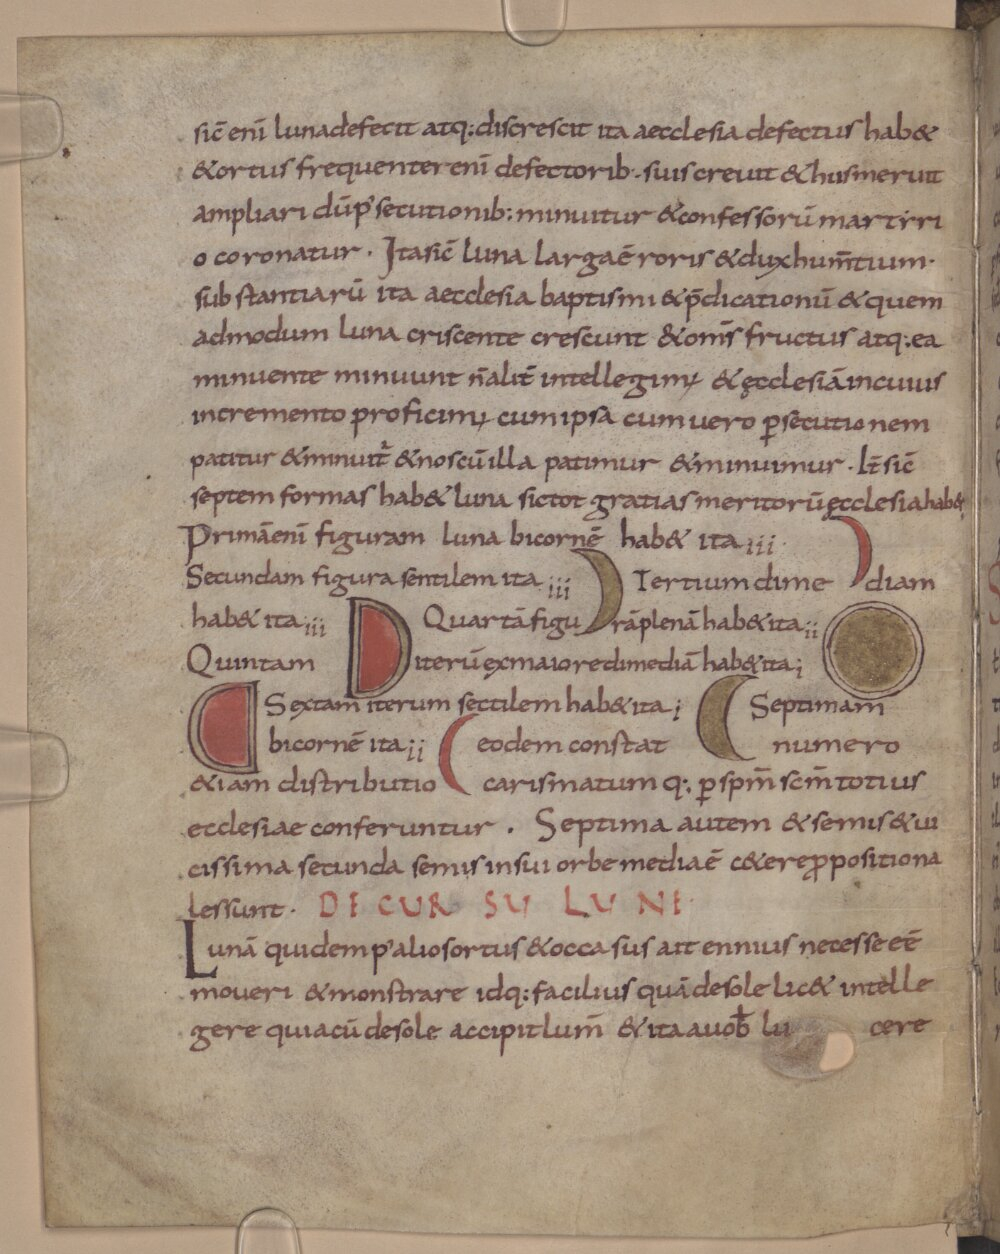 sic̄ enī luna defecit atq; discrescit ita aecclesia defectus hab&
& ortus frequenter enī defectorib; suis creuit & his meruit
ampliari dū p̱secutionib; minuitur & confessorū martirri
o coronatur · Ita sic̄ luna larga ē roris & dux hum̄tium ·
substantiarū ita aecclesia baptismi & p̄dicationū & quem
admodum luna criscente crescunt & om̄s fructus atq; ea
minuente minuunt n̄ alit̄ intellegim; & ęcclesiā in cuius
incremento proficim; cum ipsa cum uero p̱secutionem
patitur & minuit̄ & nos cū illa patimur & minuimur · It̄ sic̄
septem formas hab& luna sic tot gratias meritorū ęcclesia hab&
Primā enī figuram luna bicornē hab& ita iii
Secundam figura sentilem ita iii Tertium dime diam
hab& ita iii Quartā figu rā plenā hab& ita ii
Quintam iterū ex maiore dimediā hab& ita i
Sextam iterum sectilem hab& ita i Septimam
bicornē ita ii eodem constat numero
& iam distributio carismatum q; p̱ sp̄m sc̄m totius
ecclesiae conferuntur . Septima autem & semis & ui
cissima secunda semis in sui orbe media ē c&ere p̱positiona
les sunt · DE CURSU LUNE
Lunā quidem p̱ alios ortus & occasus ait ennius necesse eē
moueri & monstrare idq; facilius quā de sole lic& intelle
gere quia cū de sole accipit lum̄ & ita auob̄ lu cere